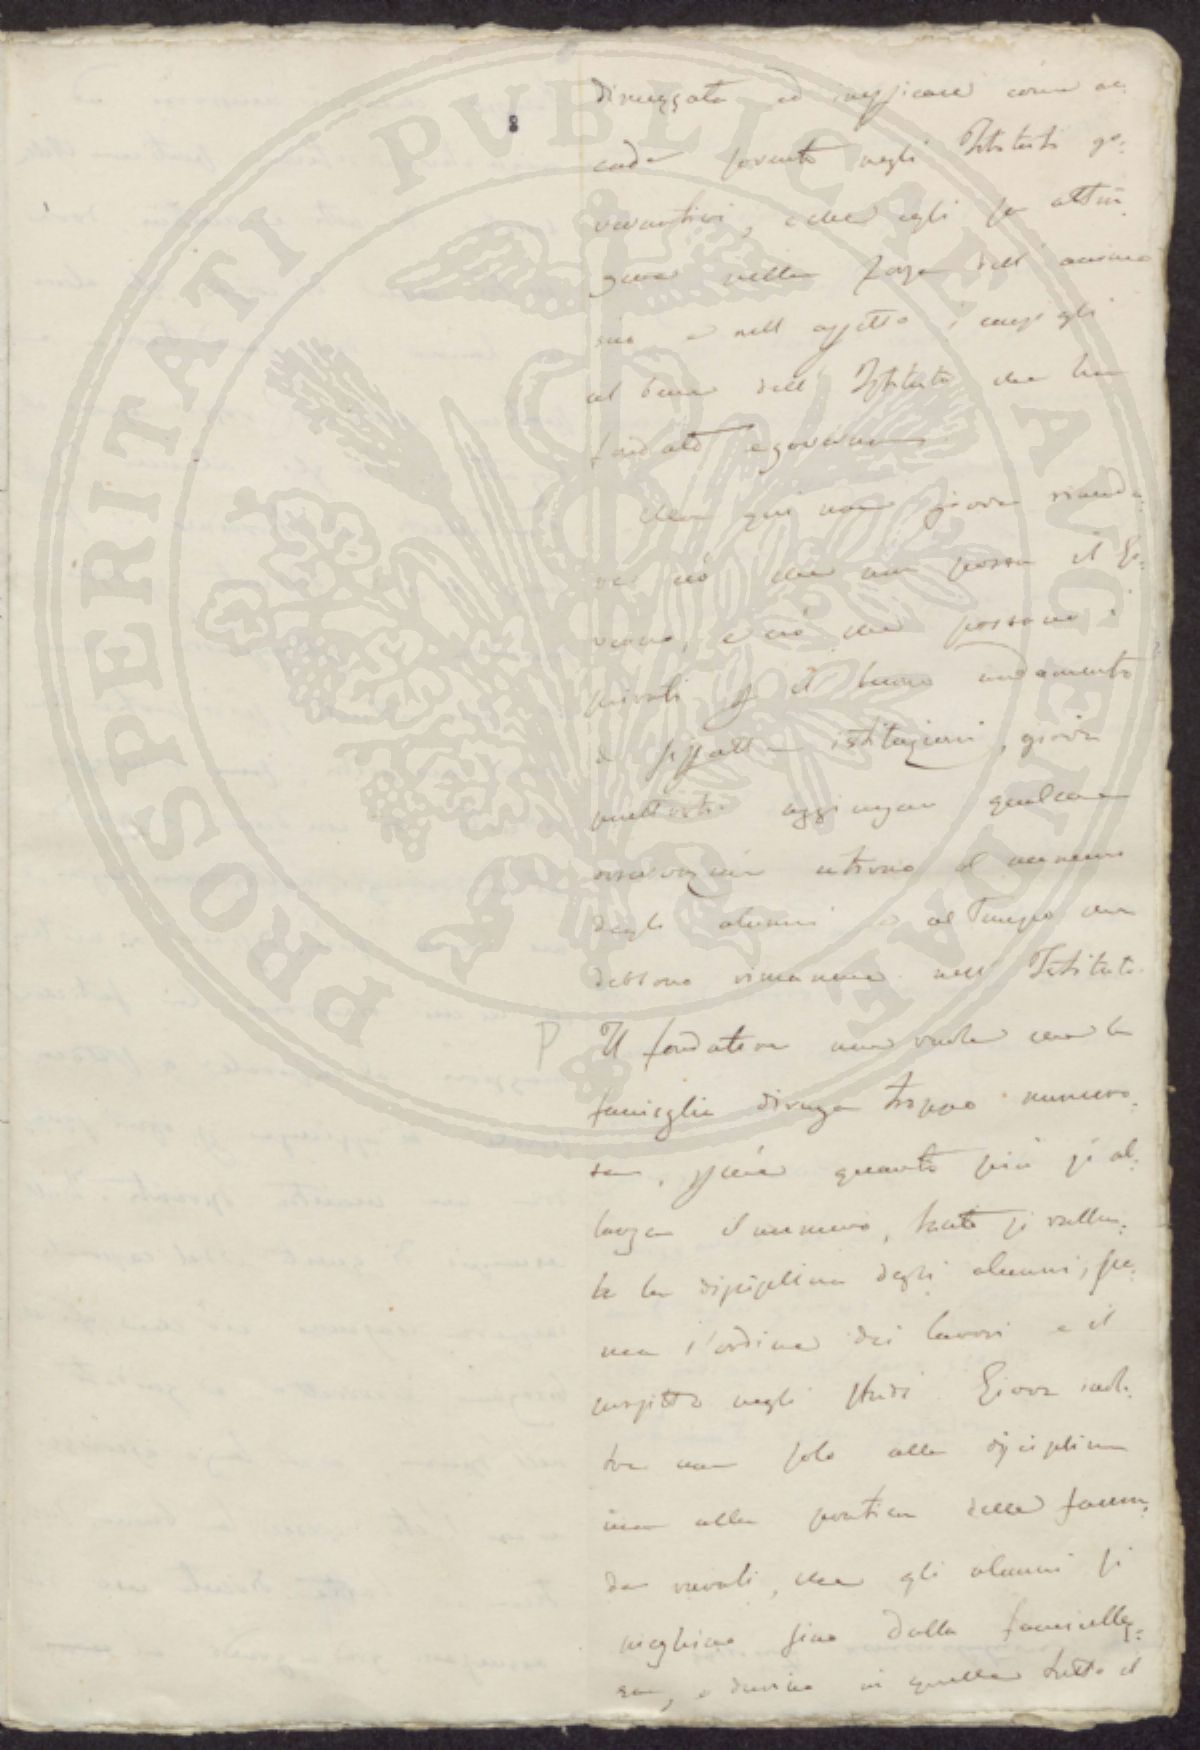 PROSPERITATI PUBLICAE AUGENDAE
8
ed inefficace come ac-
cade sovente negli Istituti go-
vernativi, e che egli sa attin-
gere nella forza dell'animo
suo e nell'affetto i consigli
al bene dell'Istituto che ha
fondato e governa.
Ma qui non giova
ciò che non possa il Go-
verno, e ciò che possono i
privati p il buon andamento
di siffatte istituzioni, giova
piuttosto aggiungere qualche
osservazione intorno al numero
degli alunni e al tempo che
debbono rimanere nell'Istituto.
P Il fondatore non vuole che la
famiglia divenga troppo numero-
sa, quanto più si al-
larga il numero, tanto si rallen-
ta la disciplina degli alunni, sce-
ma l'ordine dei lavori e il
profitto negli studi. Giova inol-
tre non solo alla disciplina
ma alla pratica delle faccen-
de rurali, che gli alunni si
pieghino fino dalla fanciullez-
za, e durino in quelle tutto il